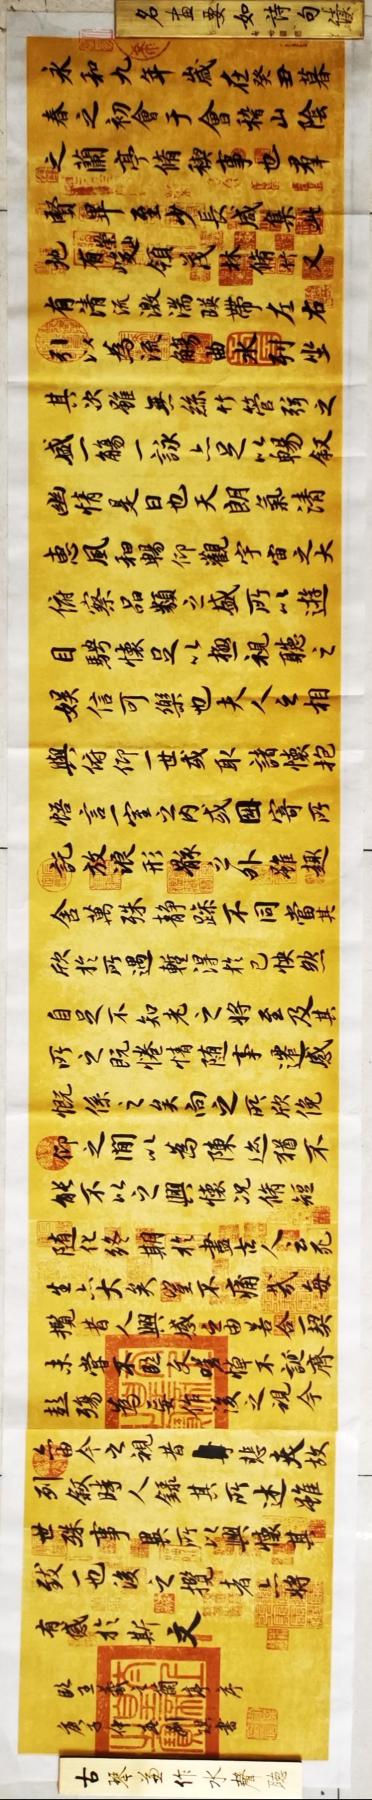 名畫要如詩句讀
永和九年歲在癸丑暮
春之初會于會稽山陰
之蘭亭脩稧事也羣
賢畢至少長咸集此
地有崇山峻領茂林脩竹又
有清流激湍暎帶左右
引以為流觴曲水列坐
其次雖無絲竹管弦之
盛一觴一詠亦足以暢敘
幽情是日也天朗氣清
惠風和暢仰觀宇宙之大
俯察品類之盛所以遊
目騁懷足以極視聽之
娛信可樂也夫人之相
與俯仰一世或取諸懷抱
悟言一室之內或因寄所
託放浪形骸之外雖趣
舍萬殊靜躁不同當其
欣於所遇暫得於己怏然
自足不知老之將至及其
所之既惓情隨事遷感
慨係之矣向之所欣俛
仰之閒以為陳迹猶不
能不以之興懷況脩短
隨化終期於盡古人云死
生亦大矣豈不痛哉每
攬昔人興感之由若合一契
未嘗不臨文嗟悼不誕齊
彭殤為妄作後之視今
亦由今之視昔悲夫故
列敘時人錄其所述雖
世殊事異所以興懷其
致一也後之攬者亦將
有感於斯文
臨王羲之蘭亭序
庚子仲書
古琴兼作水聲聽